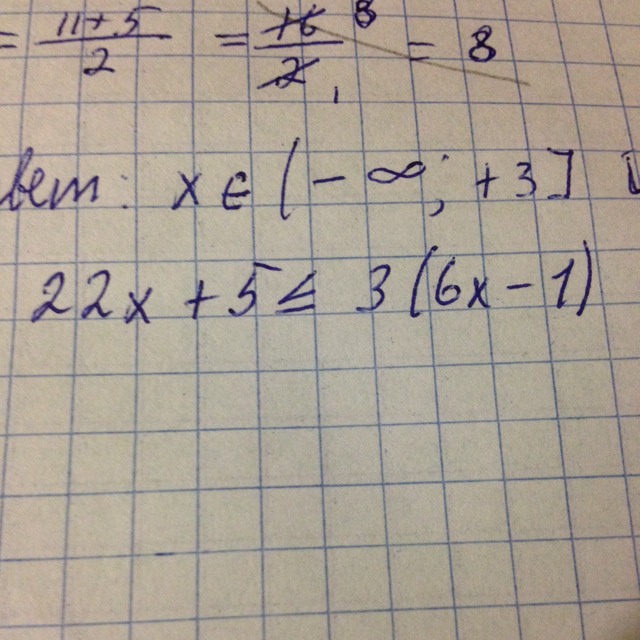 = 11+5/2 = 16/2 8 1 = 8
x ∈ (-∞; +3]
22x + 5 ≤ 3(6x - 1)